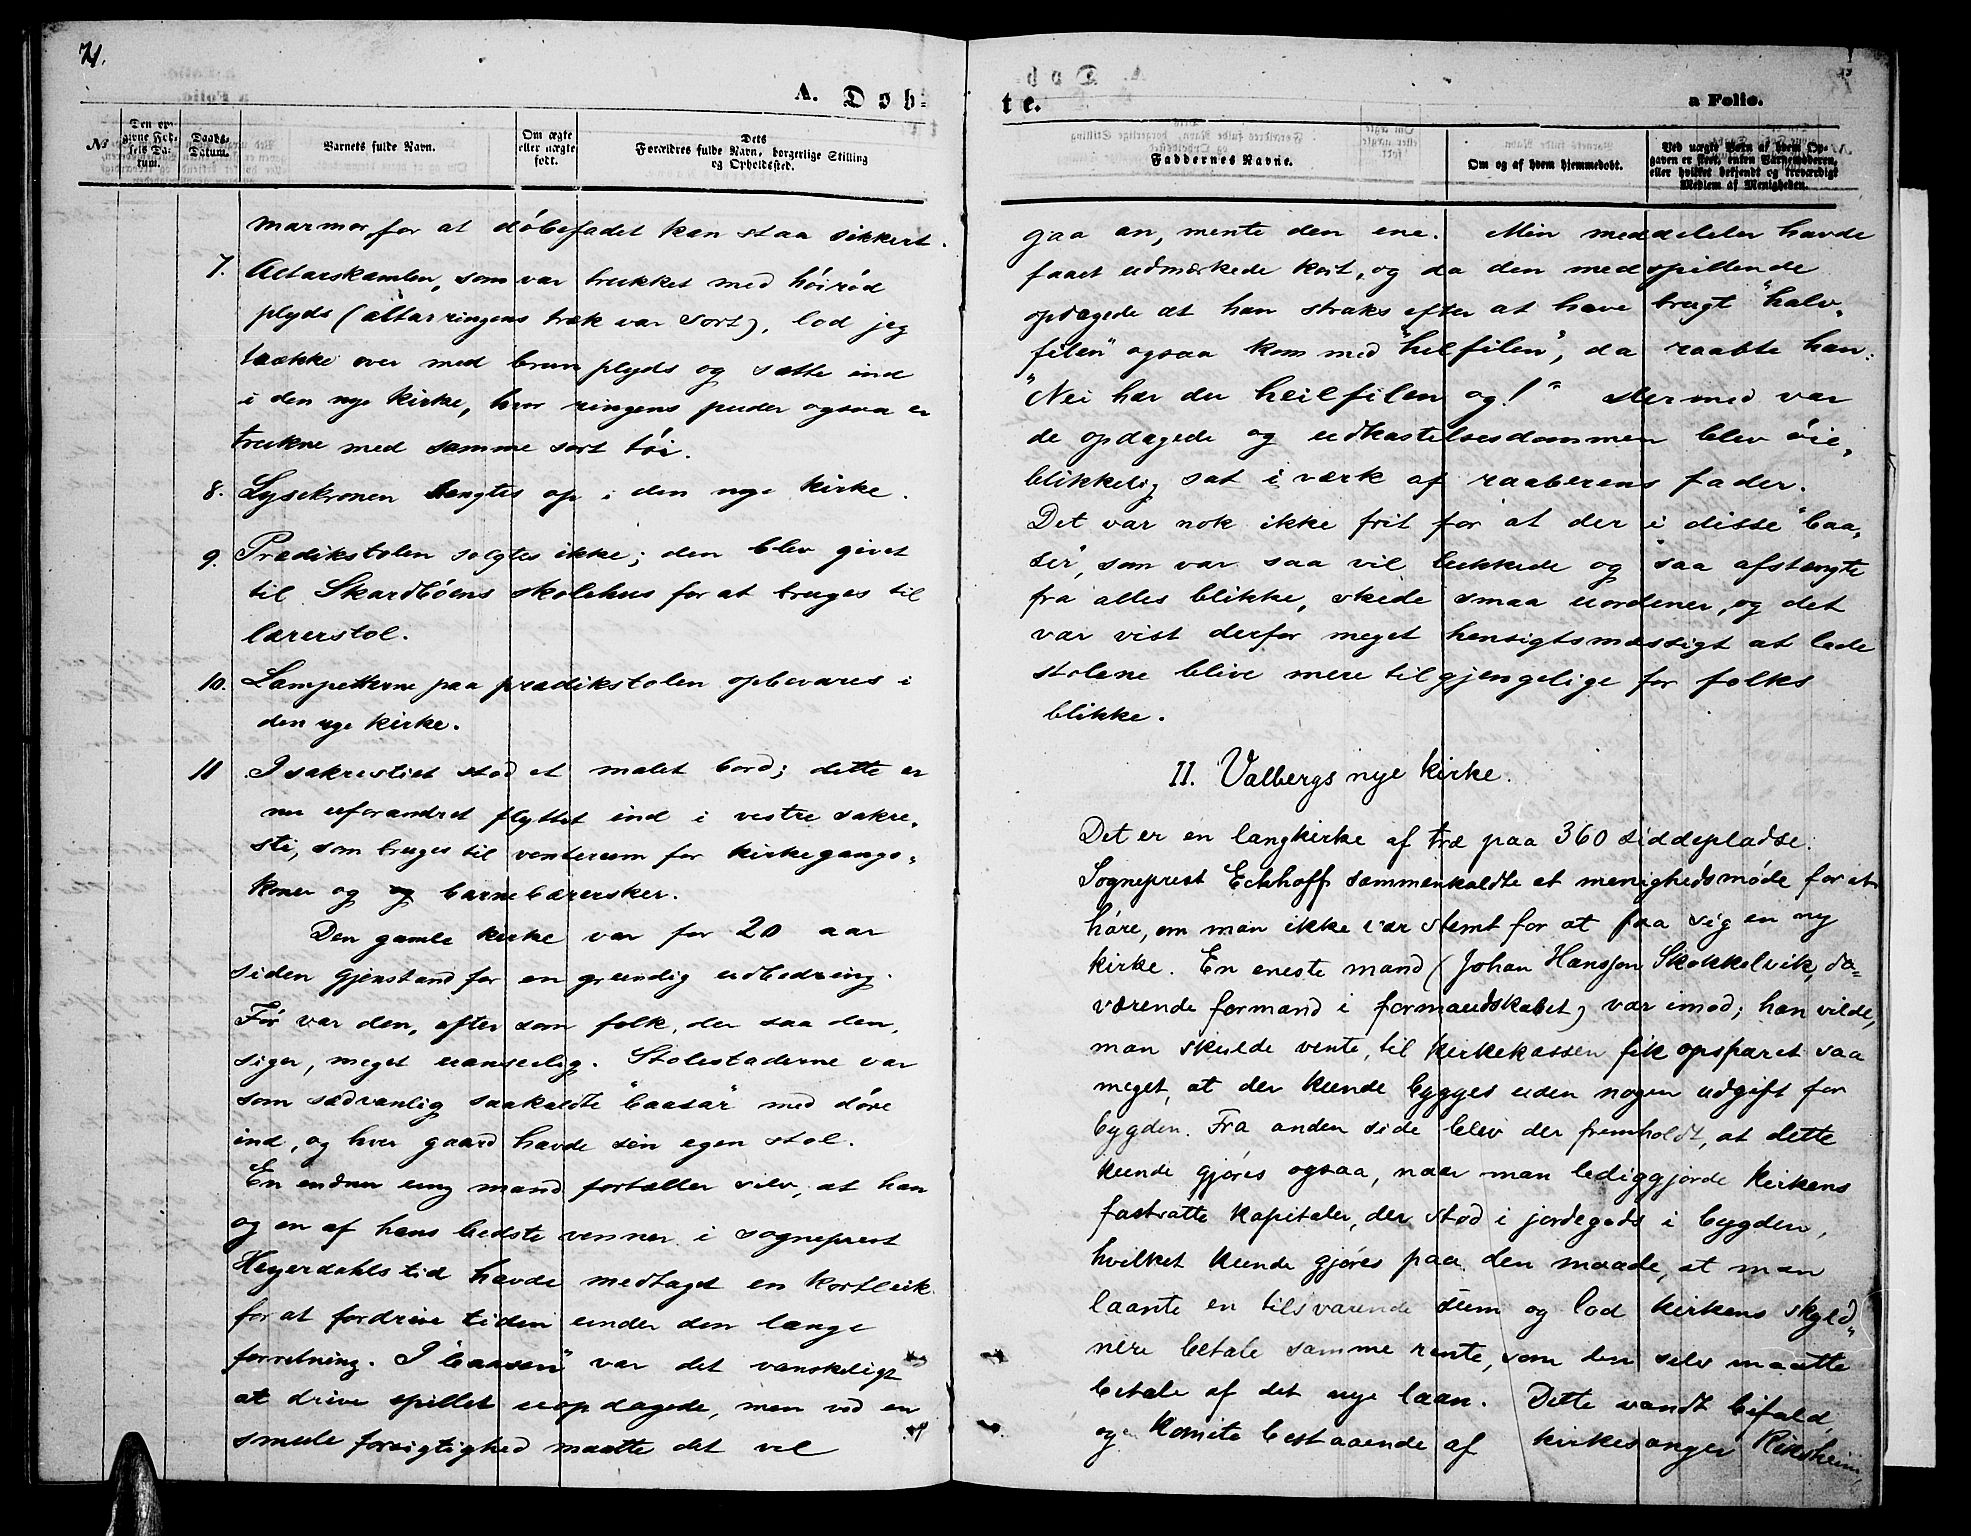 71.
A. Døb-
№
Den op-
givne Fød-
sels Da-
tum.
Daabs-
Datum.
Barnets fulde Navn.
Om ægte
eller uægte
født.
Dets
Forældres fulde Navn, borgerlige Stilling
og Opholdssted.
marmor, for at döbefadet kan staa sikkert.
7. Altarskamlen, som var trukket med höiröd
plyds (altarringens træk var sort), lod jeg
trække over med brun plyds og sætte ind
i den nye kirke, hvor ringens puder ogsaa er
trukne med samme sort töi.
8. Lysekronen hængtes op i den nye kirke.
9. Prædikstolen solgtes ikke; den blev givet
til Skardböens skolehus for at bruges til
lærerstol.
10. Lampetterne paa prædikstolen opbevares i
den nye kirke.
11 I sakrestiet stod et malet bord; dette er
nu uforandret flyttet ind i vestre sakre-
sti, som bruges til venterum for kirkegangs-
koner og og barnebærersker.
Den gamle kirke var for 20 aar
siden gjenstand for en grundig udbedring.
Før var den, efter som folk, der saa den,
siger, meget uanseelig. Stolestaderne var
som sædvanlig saakaldte "baasar" med döre
ind, og hver gaard havde sin egen stol.
En endnu ung mand fortæller selv, at han
og en af hans bedste venner i sogneprest
Heyerdahls tid havde medtaget en kortleik
for at fordrive tiden under den lange
forretning. I "baasen" var det vanskeligt
at drive spillet uopdagede, men ved en
smule forsigtighed maatte det vel
te.
a Folio.
Faddernes Navne.
Om og af hvem hjemmedøbt.
Ved uægte Børn af hvem Op-
gaven er skeet, enten Barnemoderen,
eller hvilket bekjendt og troværdigt
Medlem af Menigheden.
gaa an, mente den ene. Min meddeler havde
faaet udmærkede kort, og da den medspillende
opdagede at han straks efter at have brugt "halv-
filen" ogsaa kom med "helfilen", da raabte han:
"Nei har du heilfilen og!" Dermed var
de opdagede og udkastelsesdommen blev öie-
blikkelig sat i værk af raaberens fader.
Det var nok ikke frit for at der i disse "baa-
ser", som var saa vel lukkede og saa afstængte
fra alles blikke, skede smaa uordener, og det
var vist derfor meget hensigtsmæssigt at lade
stolene blive mere tilgjengelige for folks
blikke.
II. Valbergs nye kirke.
Det er en langkirke af træ paa 360 siddepladse.
Sogneprest Eckhoff sammenkaldte et menighedsmøde for at
höre, om man ikke var stemt for at faa sig en ny
kirke. En eneste mand (Johan Hansson Skokkelvik, da-
værende formand i formandskabet) var imod; han vilde,
man skulde vente, til kirkekassen fik opsparet saa
meget, at der kunde bygges uden nogen udgift for
bygden. Fra anden side blev der fremholdt, at dette
kunde gjøres ogsaa, naar man lediggjorde kirkens
fastsatte kapitaler, der stod i jordegods i bygden,
hvilket kunde gjøres paa den maade, at man
laante en tilsvarende sum og lod kirkens skyld-
nere betale samme rente, som den selv maatte
betale af det nye laan. Dette vandt bifald,
og komite bestaaende af kirkesanger